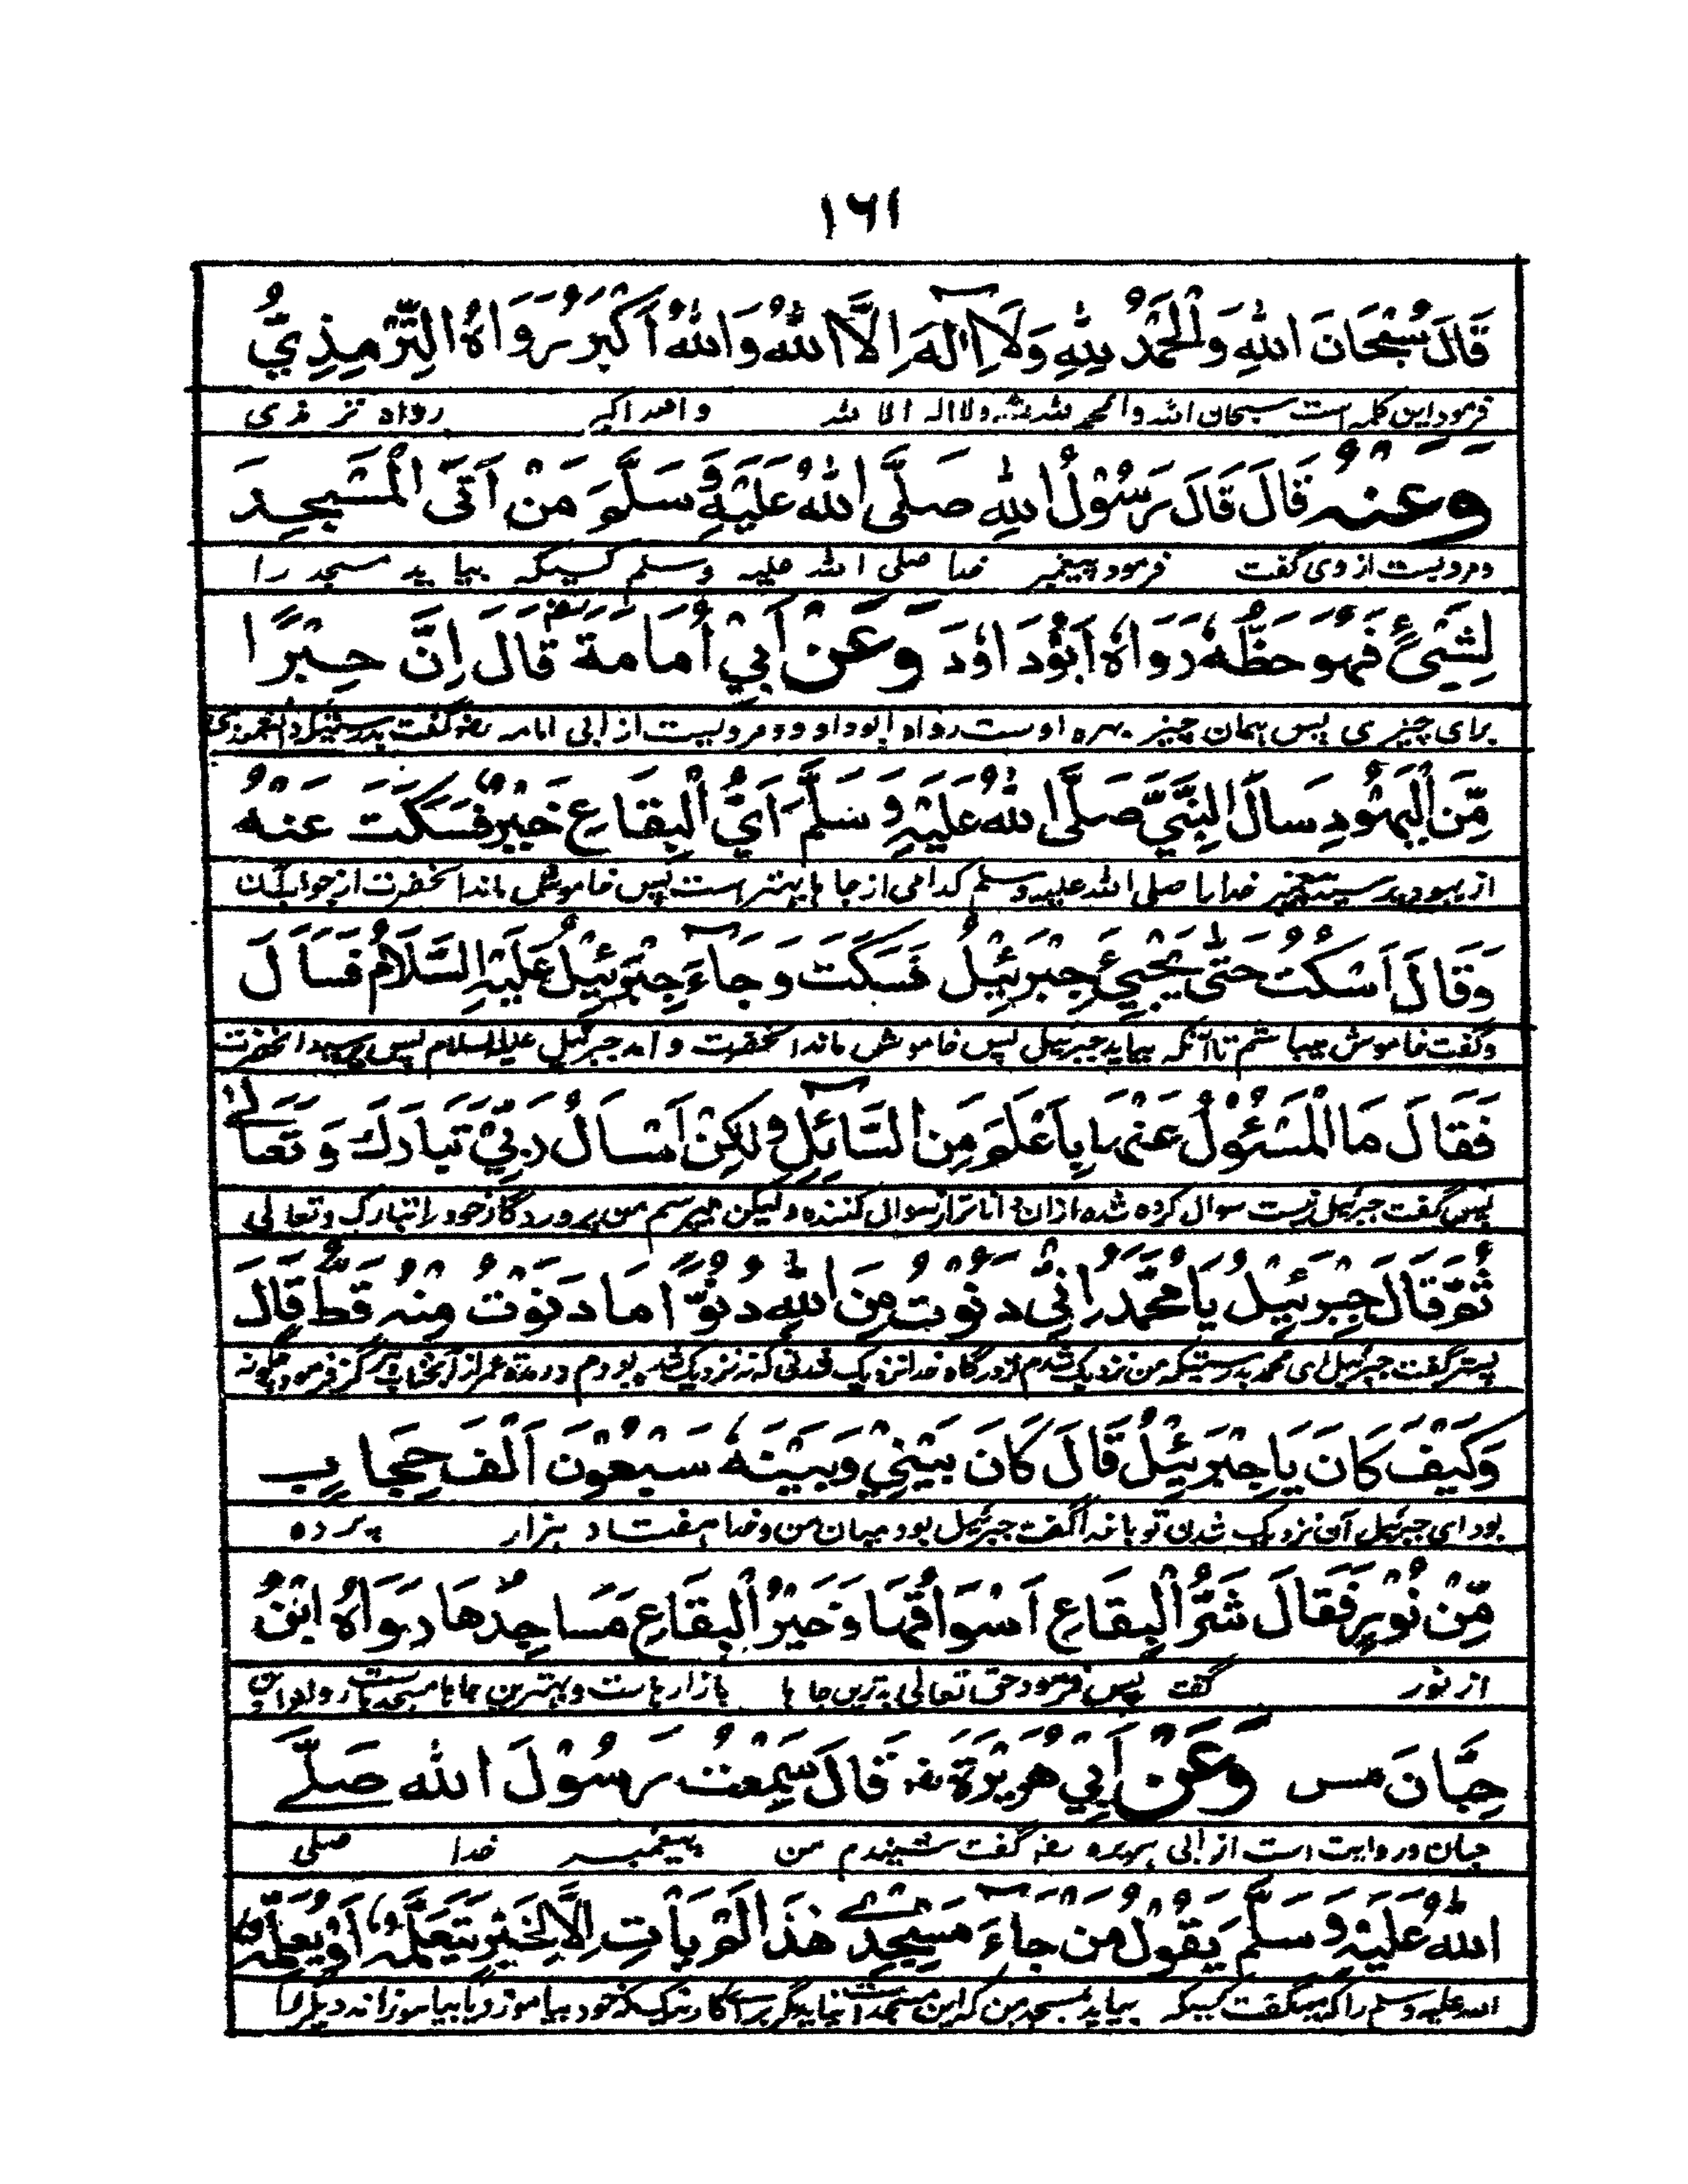 ١٦١
قَالَ سُبْحَانَ اللهِ وَالْحَمْدُ لِلهِ وَلَا اِلٰهَ اِلَّا اللهُ وَاللهُ اَكْبَرُ رَوَاهُ التِّرْمِذِيُّ
فرمود این کلمه است سبحان الله والحمد لله ولا اله الا لله والله اکبر رواه تر مذی
وَعَنْهُ قَالَ قَالَ رَسُوْلُ اللهِ صَلَّى اللهُ عَلَيْهِ وَسَلَّمَ مَنْ اَتَى الْمَسْجِدَ
ومرویست از وی گفت فرمود پیغمبر خدا صلی الله علیه وسلم کسیکه بیا ید مسجد را
لِشَيْءٍ فَهُوَ حَظُّهٗ رَوَاهُ اَبُوْدَاوٗدَ وَعَنْ اَبِيْ اُمَامَةَ رض قَالَ اِنَّ حِبْرًا
برای چیزی پس همان چیز بهره اوست رواه ابوداود ومرویست از ابی امامه رض گفت بدرستیکه
مِّنَ الْيَهُوْدِ سَاَلَ النَّبِيَّ صَلَّى اللهُ عَلَيْهِ وَسَلَّمَ اَيُّ الْبِقَاعِ خَيْرٌ فَسَكَتَ عَنْهُ
از یهود پرسید پیغمبر خدا را صلی الله علیه وسلم کدامی از جا ها بهتر است پس خاموش ماند آنحضرت از جواب آن
وَقَالَ اَسْكُتُ حَتّٰى يَجِيْءَ جِبْرَئِيْلُ فَسَكَتَ وَجَآءَ جِبْرَئِيْلُ عَلَيْهِ السَّلَامُ فَسَاَلَ
وگفت خاموش میباشم تا آنکه بیاید جبرئیل پس خاموش ماند آنحضرت و آمد جبرئیل علیه السلام پس پرسید آنحضرت
فَقَالَ مَا الْمَسْئُوْلُ عَنْهَا بِاَعْلَمَ مِنَ السَّآئِلِ وَلٰكِنْ اَسْاَلُ رَبِّيْ تَبَارَكَ وَتَعَالٰى
پس گفت جبرئیل نیست سوال کرده شده ازان دانا تر از سوال کننده ولیکن میپرسم من پروردگار خود را تبارک وتعالی
ثُمَّ قَالَ جِبْرَئِيْلُ يَا مُحَمَّدُ اِنِّيْ دَنَوْتُ مِنَ اللهِ دُنُوًّا مَا دَنَوْتُ مِنْهُ قَطُّ قَالَ
پستر گفت جبرئیل ای محمد بدرستیکه من نزدیک شدم از درگاه خدا نزدیک شدنی که نه نزدیک شده بودم در مدة عمر از آنجناب هرگز فرمود چگونه
وَكَيْفَ كَانَ يَا جِبْرَئِيْلُ قَالَ كَانَ بَيْنِيْ وَبَيْنَهٗ سَبْعُوْنَ اَلْفَ حِجَابٍ
بود ای جبرئیل آن نزدیک شدن تو با خدا گفت جبرئیل بود میان من وخدا هفتاد هزار پرده
مِّنْ نُوْرٍ فَقَالَ شَرُّ الْبِقَاعِ اَسْوَاقُهَا وَخَيْرُ الْبِقَاعِ مَسَاجِدُهَا رَوَاهُ ابْنُ
از نور گفت پس فرمود حق تعالی بدترین جا ها بازارهاست وبهترین جاها مسجدهاست
حِبَّانَ مس وَعَنْ اَبِيْ هُرَيْرَةَ رض قَالَ سَمِعْتُ رَسُوْلَ الله صَلَّى
حبان وروایت است از ابی هریره رض گفت شنیدم من پیغمبر خدا صلی
اللهُ عَلَيْهِ وَسَلَّمَ يَقُوْلُ مَنْ جَآءَ مَسْجِدِيْ هٰذَا لَمْ يَاْتِ اِلَّا لِخَيْرٍ يَتَعَلَّمُهٗ اَوْ يُعَلِّمُهٗ
الله علیه وسلم را که میگفت کسیکه بیاید بمسجد من که این مسجد است نیاید مگر برای کار نیک که خود بیاموزد یا بیاموزاند دیگر را